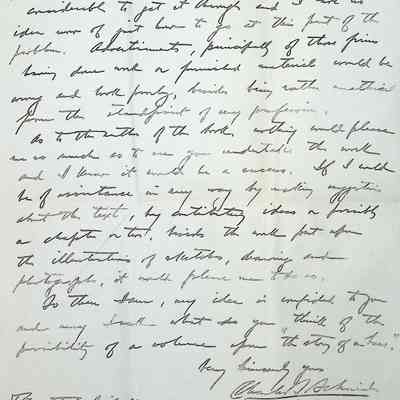 considerably to get it through and I have no
idea now of just how to go at this part of the
problem. Advertisements, principally of those firms
having done work or furnished material would be
wrong and look poorly, besides being rather unethical
from the standpoint of my profession.
As to the writer of the book, nothing would please
me so much as to see you undertake the work
and I know it would be a success. If I could
be of assistance in any way by making suggestions
about the text, by contributing ideas or possibly
a chapter or two, besides the work put upon
the illustrations of sketches, drawings and
photographs, it would please me to do so.
So then Sam, my idea is confided to you
and may I ask what do you think of the
possibility of a volume upon "the story of a house."
Very Sincerely yours
Charles